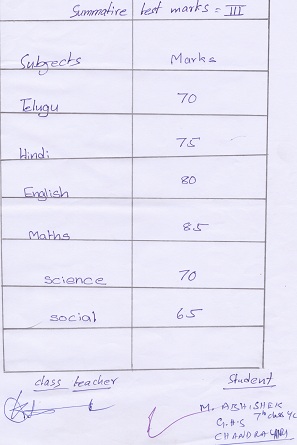 Summative test marks = III
Subjects Marks
Telugu 70
Hindi 75
English 80
Maths 85
science 70
social 65
class teacher Student
M. ABHISHEK
7th class
G.H.S